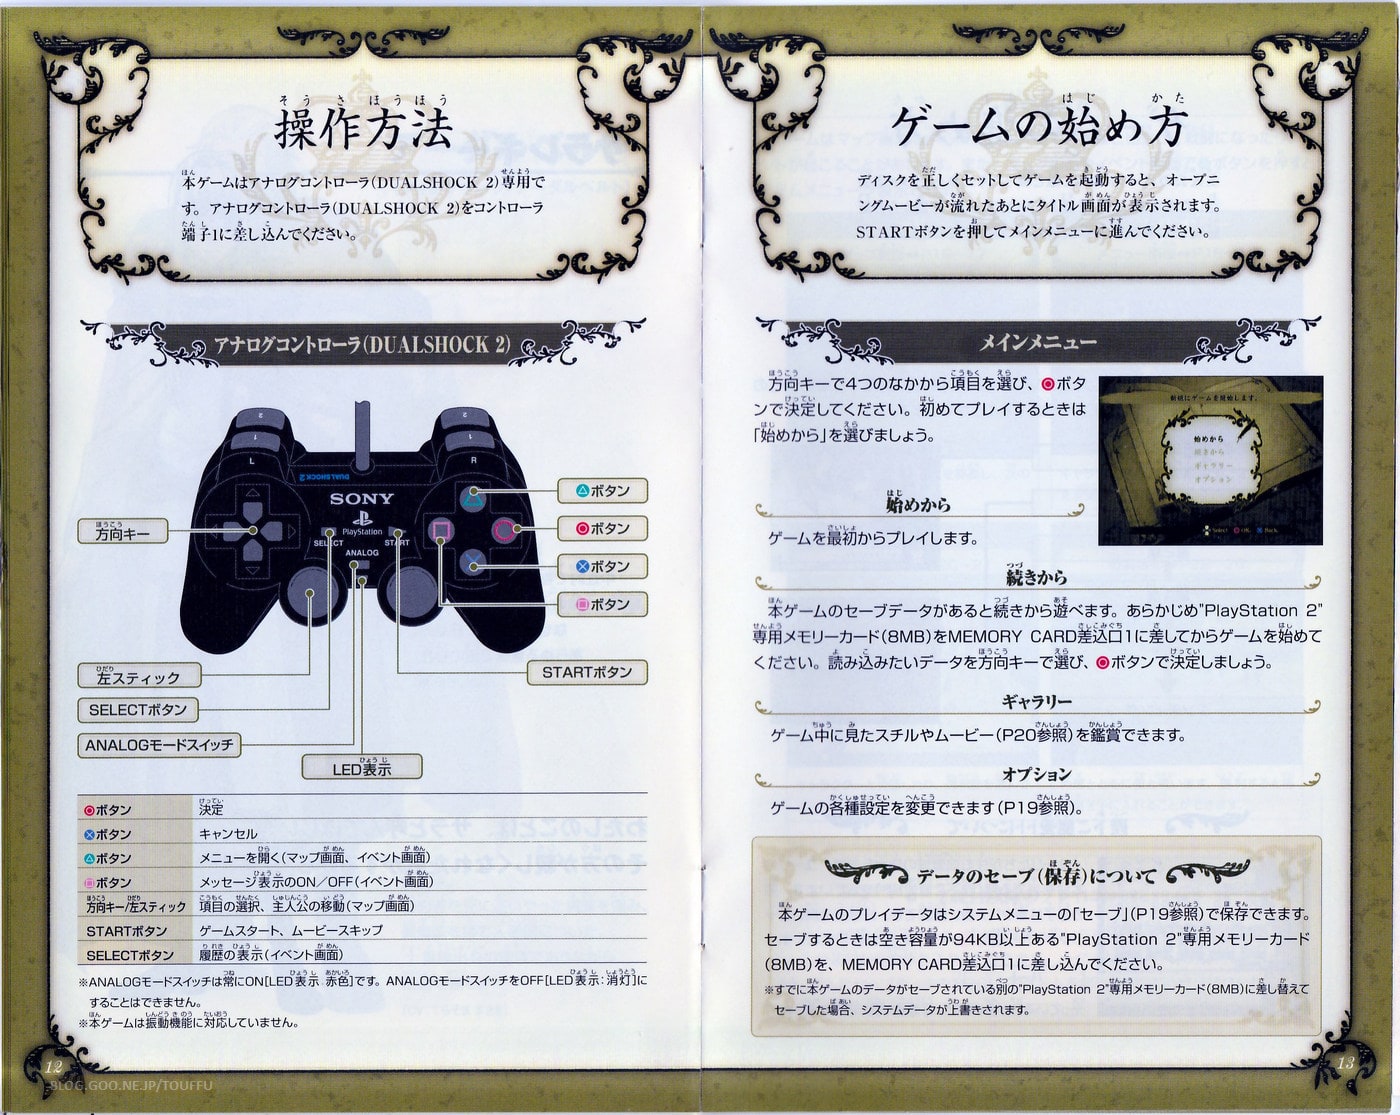 操作方法
本ゲームはアナログコントローラ(DUALSHOCK 2)専用で
す。アナログコントローラ(DUALSHOCK 2)をコントローラ
端子1に差し込んでください。
アナログコントローラ(DUALSHOCK 2)
2
1
L
2
1
R
DUALSHOCK 2
SONY
PlayStation
SELECT
START
ANALOG
方向キー
△ボタン
○ボタン
×ボタン
□ボタン
左スティック
SELECTボタン
ANALOGモードスイッチ
LED表示
STARTボタン
○ボタン 決定
×ボタン キャンセル
△ボタン メニューを開く(マップ画面、イベント画面)
□ボタン メッセージ表示のON/OFF(イベント画面)
方向キー/左スティック 項目の選択、主人公の移動(マップ画面)
STARTボタン ゲームスタート、ムービースキップ
SELECTボタン 履歴の表示(イベント画面)
※ANALOGモードスイッチは常にON[LED表示 赤色]です。ANALOGモードスイッチをOFF[LED表示:消灯]に
することはできません。
※本ゲームは振動機能に対応していません。
12
BLOG.GOO.NE.JP/TOUFFU
ゲームの始め方
ディスクを正しくセットしてゲームを起動すると、オープニ
ングムービーが流れたあとにタイトル画面が表示されます。
STARTボタンを押してメインメニューに進んでください。
メインメニュー
方向キーで4つのなかから項目を選び、○ボタ
ンで決定してください。初めてプレイするときは
「始めから」を選びましょう。
新規にゲームを開始します。
始めから
続きから
ギャラリー
オプション
Select OK Back
始めから
ゲームを最初からプレイします。
続きから
本ゲームのセーブデータがあると続きから遊べます。あらかじめ"PlayStation 2"
専用メモリーカード(8MB)をMEMORY CARD差込口1に差してからゲームを始めて
ください。読み込みたいデータを方向キーで選び、○ボタンで決定しましょう。
ギャラリー
ゲーム中に見たスチルやムービー(P20参照)を鑑賞できます。
オプション
ゲームの各種設定を変更できます(P19参照)。
データのセーブ(保存)について
本ゲームのプレイデータはシステムメニューの「セーブ」(P19参照)で保存できます。
セーブするときは空き容量が94KB以上ある"PlayStation 2"専用メモリーカード
(8MB)を、MEMORY CARD差込口1に差し込んでください。
※すでに本ゲームのデータがセーブされている別の"PlayStation 2"専用メモリーカード(8MB)に差し替えて
セーブした場合、システムデータが上書きされます。
13